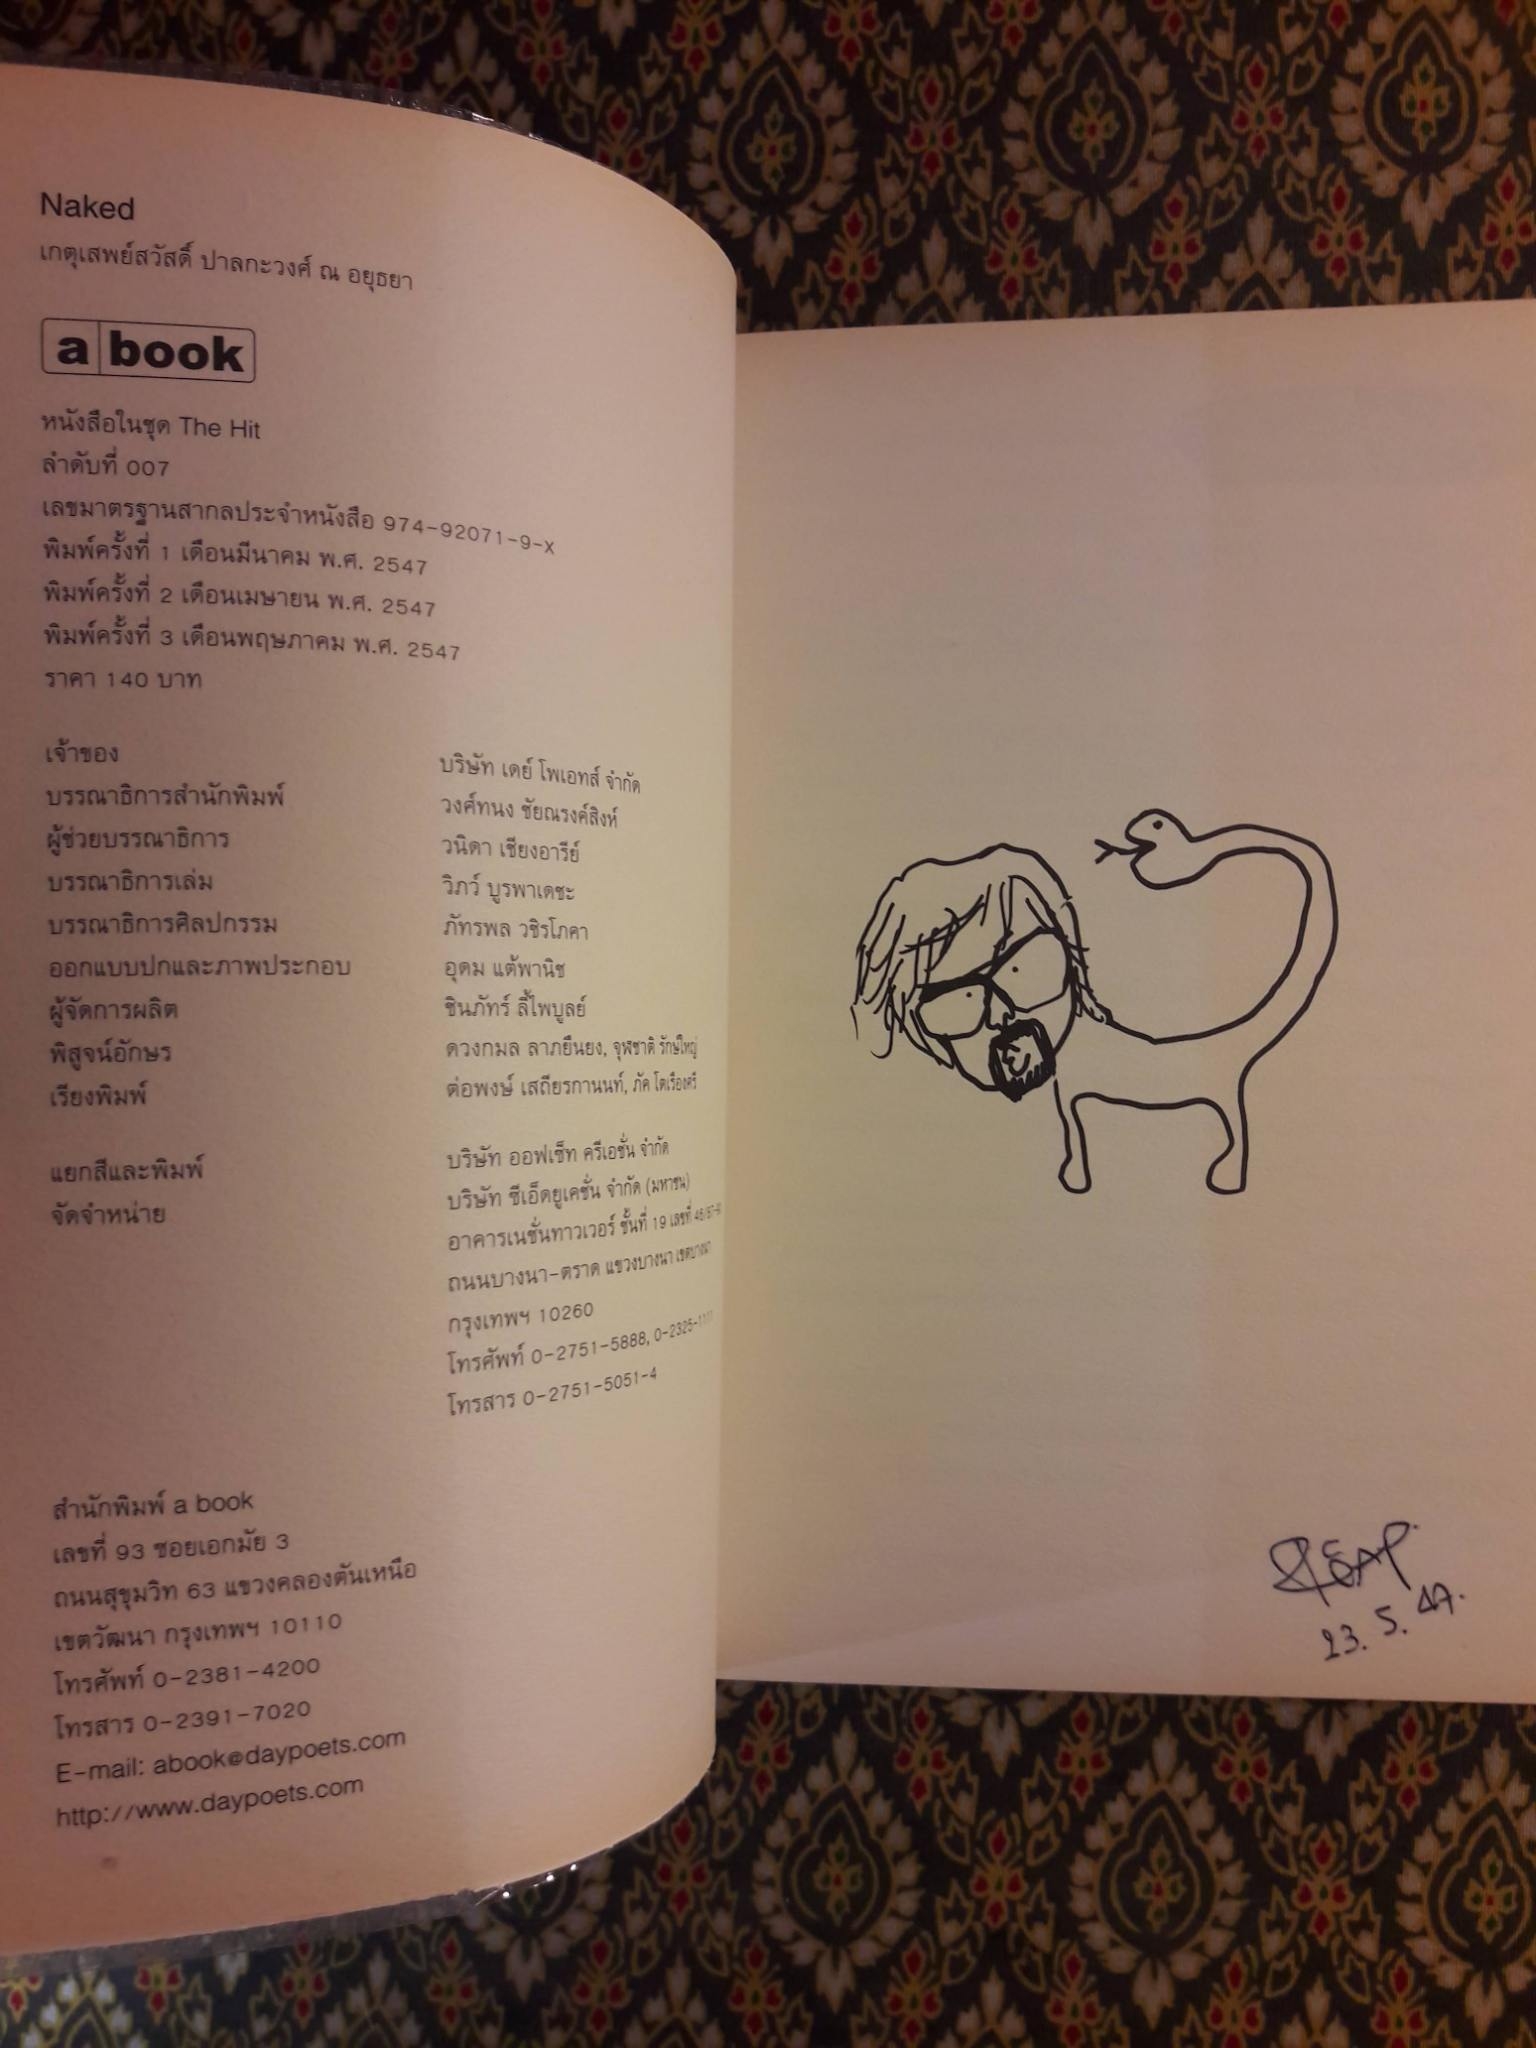 Naked
เกตุเสพย์สวัสดิ์ ปาลกะวงศ์ ณ อยุธยา
a book
หนังสือในชุด The Hit
ลำดับที่ 007
เลขมาตรฐานสากลประจำหนังสือ 974-92071-9-x
พิมพ์ครั้งที่ 1 เดือนมีนาคม พ.ศ. 2547
พิมพ์ครั้งที่ 2 เดือนเมษายน พ.ศ. 2547
พิมพ์ครั้งที่ 3 เดือนพฤษภาคม พ.ศ. 2547
ราคา 140 บาท
เจ้าของ บริษัท เดย์ โพเอทส์ จำกัด
บรรณาธิการสำนักพิมพ์ วงศ์ทนง ชัยณรงค์สิงห์
ผู้ช่วยบรรณาธิการ วนิดา เชียงอารีย์
บรรณาธิการเล่ม วิภว์ บูรพาเดชะ
บรรณาธิการศิลปกรรม ภัทรพล วชิรโภคา
ออกแบบปกและภาพประกอบ อุดม แต้พานิช
ผู้จัดการผลิต ชินภัทร์ ลี้ไพบูลย์
พิสูจน์อักษร ดวงกมล ลาภยืนยง, จุฬชาติ รักษ์ใหญ่
เรียงพิมพ์ ต่อพงษ์ เสถียรกานนท์, ภัค โตเรืองศรี
แยกสีและพิมพ์ บริษัท ออฟเซ็ท ครีเอชั่น จำกัด
จัดจำหน่าย บริษัท ซีเอ็ดยูเคชั่น จำกัด (มหาชน)
อาคารเนชั่นทาวเวอร์ ชั้นที่ 19 เลขที่
ถนนบางนา-ตราด แขวงบางนา เขตบางนา
กรุงเทพฯ 10260
โทรศัพท์ 0-2751-5888,
โทรสาร 0-2751-5051-4
สำนักพิมพ์ a book
เลขที่ 93 ซอยเอกมัย 3
ถนนสุขุมวิท 63 แขวงคลองตันเหนือ
เขตวัฒนา กรุงเทพฯ 10110
โทรศัพท์ 0-2381-4200
โทรสาร 0-2391-7020
E-mail: abook@daypoets.com
http://www.daypoets.com
23. 5. 47.